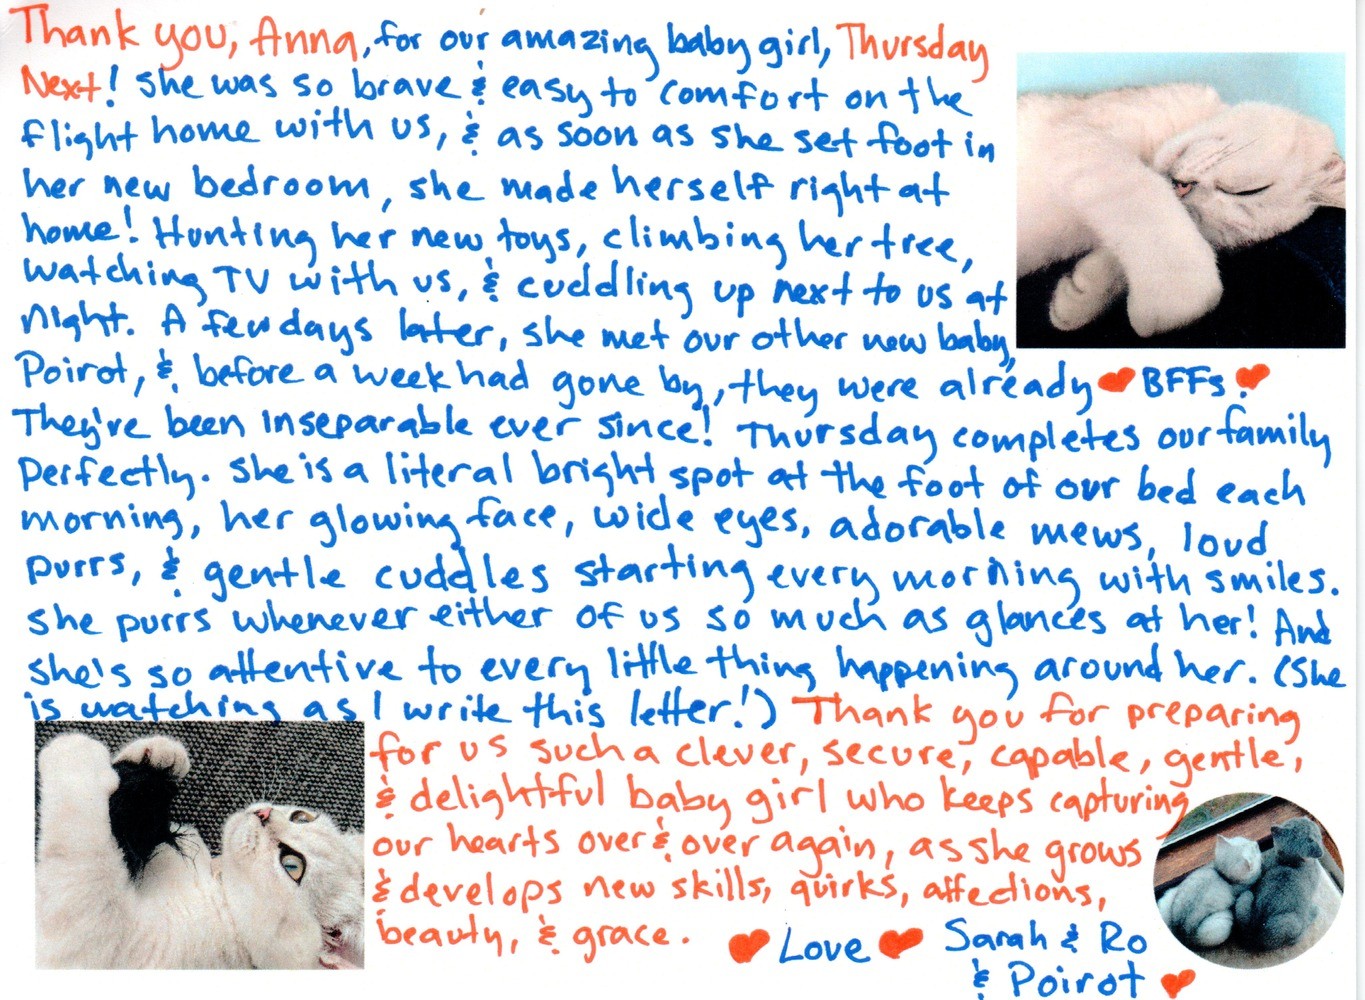 Thank you, Anna, for our amazing baby girl, Thursday
Next! She was so brave & easy to comfort on the
flight home with us, & as soon as she set foot in
her new bedroom, she made herself right at
home! Hunting her new toys, climbing her tree,
watching TV with us, & cuddling up next to us at
night. A few days later, she met our other new baby,
Poirot, & before a week had gone by, they were already ❤ BFFs! ❤
They're been inseparable ever since! Thursday completes our family
perfectly. She is a literal bright spot at the foot of our bed each
morning, her glowing face, wide eyes, adorable mews, loud
purrs, & gentle cuddles starting every morning with smiles.
She purrs whenever either of us so much as glances at her! And
she's so attentive to every little thing happening around her. (She
is watching as I write this letter!) Thank you for preparing
for us such a clever, secure, capable, gentle,
& delightful baby girl who keeps capturing
our hearts over & over again, as she grows
& develops new skills, quirks, affections,
beauty, & grace.
❤ Love ❤ Sarah & Ro
& Poirot ❤